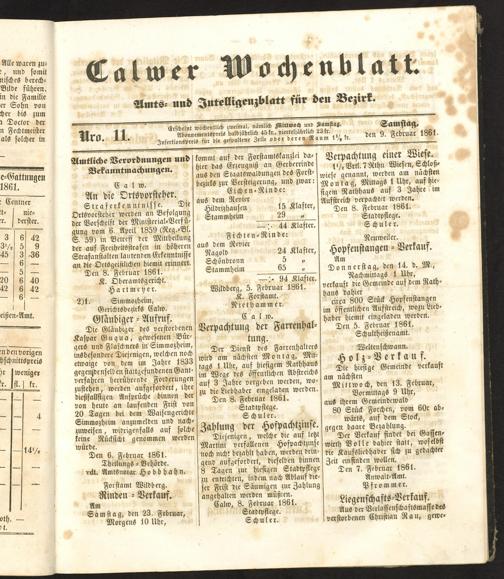 Calwer Wochenblatt.
Amts- und Intelligenzblatt für den Bezirk.
Nro. 11.
Erscheint wöchentlich zweimal, nämlich Mittwoch und Samstag.
Abonnementspreis halbjährlich 45 kr., vierteljährlich 23 kr.
Insertionspreis für die gespaltene Zeile oder deren Raum 1½ kr.
Samstag,
den 9. Februar 1861.
Amtliche Verordnungen und
Bekanntmachungen.
Calw.
An die Ortsvorsteher.
Straferkenntnisse. Die
Ortsvorsteher werden an Befolgung
der Vorschrift der Ministerial-Verfü-
gung vom 6. April 1859 (Reg.-Bl.
S. 59) in Betreff der Mittheilung
der auf Freiheitsstrafen in höheren
Strafanstalten lautenden Erkenntnisse
an die Ortsgeistlichen hiemit erinnert.
Den 8. Februar 1861.
K. Oberamtsgericht.
Hartmeyer.
2)1. Simmozheim,
Gerichtsbezirks Calw.
Gläubiger-Aufruf.
Die Gläubiger des verstorbenen
Kaspar Gugua, gewesenen Bür-
gers und Taglöhners in Simmozheim,
insbesondere Diejenigen, welchen noch
etwaige von dem im Jahre 1833
gegen denselben stattgefundenen Gant-
verfahren herrührende Forderungen
zustehen, werden aufgefordert, ihre
dießfallsigen Ansprüche binnen der
von heute an laufenden Frist von
20 Tagen bei dem Waisengerichte
Simmozheim anzumelden und nach-
zuweisen, widrigenfalls auf solche
keine Rücksicht genommen werden
würde.
Den 6. Februar 1861.
Theilungs-Behörde.
vdt. Amtsnotar Hobbhahn.
Forstamt Wildberg.
Rinden-Verkauf.
Am
Samstag, den 23. Februar,
Morgens 10 Uhr,
kommt auf der Forstamtskanzlei da-
hier das Erzeugniß der Rinden
aus den Staatswaldungen des Forst-
bezirks zur Versteigerung, und zwar:
Eichen-Rinde:
aus dem Revier
Hildrizhausen 15 Klafter,
Stammheim 29 „
—: 44 Klafter.
Fichten-Rinde:
aus dem Revier
Nagold 24 Klafter,
Schönbronn 5 „
Stammheim 65 „
—: 94 Klafter.
Wildberg, 5. Februar 1861.
K. Forstamt.
Niethammer.
Calw.
Verpachtung der Farrenhal-
tung.
Der Dienst des Farrenhalters
wird am nächsten Montag, Mit-
tags 1 Uhr, auf hiesigem Rathhaus
im öffentlichen Aufstreich wieder auf
3 Jahre vergeben werden, wo-
zu die Liebhaber eingeladen werden.
Den 8. Februar 1861.
Stadtpflege.
Schuler.
Zahlung der Hofpachtzinse.
Diejenigen, welche die auf letzt
Martini verfallenen Hofpachtzinse
noch nicht bezahlt haben, werden drin-
gend aufgefordert, dieselben binnen
8 Tagen zur hiesigen Stadtpflege
zu entrichten, indem nach Ablauf die-
ser Frist die Säumigen zur Zahlung
angehalten werden müßten.
Calw, 8. Februar 1861.
Stadtpflege.
Schuler.
Verpachtung einer Wiese.
1½ Vrtl. 7 Rthn. Wiesen, Schloß-
wiese genannt, werden am nächsten
Montag, Mittags 1 Uhr, auf hie-
sigem Rathhaus auf 3 Jahre im
Aufstreich verpachtet werden.
Den 8. Februar 1861.
Stadtpflege.
Schuler.
Neuweiler.
Hopfenstangen-Verkauf.
Am
Donnerstag, den 14. d. M.,
Nachmittags 1 Uhr,
verkauft die Gemeinde auf dem Rath-
haus dahier
circa 800 Stück Hopfenstangen
im öffentlichen Aufstreich, wozu Lieb-
haber hiemit eingeladen werden.
Den 5. Februar 1861.
Schultheißenamt.
Weltenschwann.
Holz-Verkauf.
Die hiesige Gemeinde verkauft
am nächsten
Mittwoch, den 13. Februar,
Vormittags 9 Uhr,
aus ihrem Gemeindewald
80 Stück Forchen, vom 60r ab-
wärts, auf dem Stock,
gegen baare Bezahlung.
Der Verkauf findet bei Gassen-
wirth Bolle dahier statt, wobei
die Kaufsliebhaber sich zu gedachter
Zeit einfinden wollen.
Den 7. Februar 1861.
Anwalt-Amt.
Pfrommer.
Liegenschafts-Verkauf.
Aus der Verlassenschaftsmasse des
verstorbenen Christian Rau, gewe-